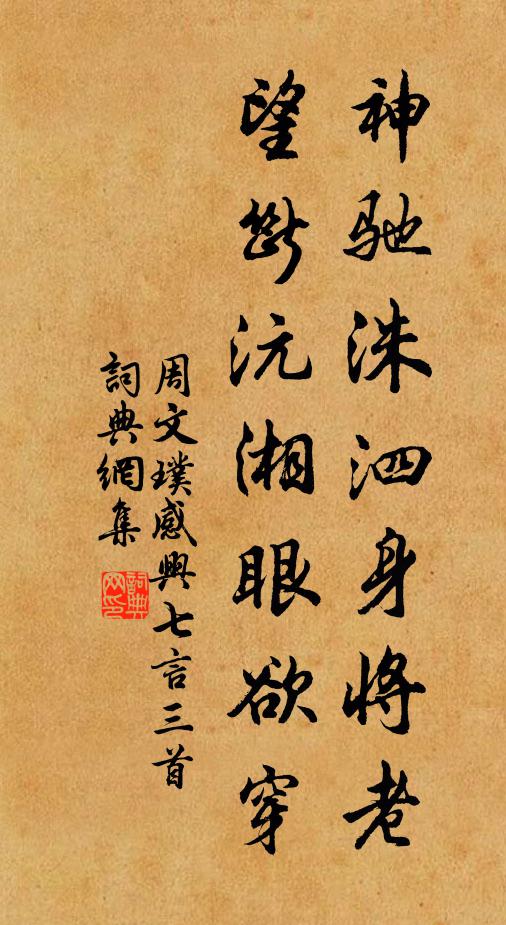 神馳洙泗身將老
望斷沅湘眼欲穿
周文璞感興七言三首
詞典網集
詞典
网印